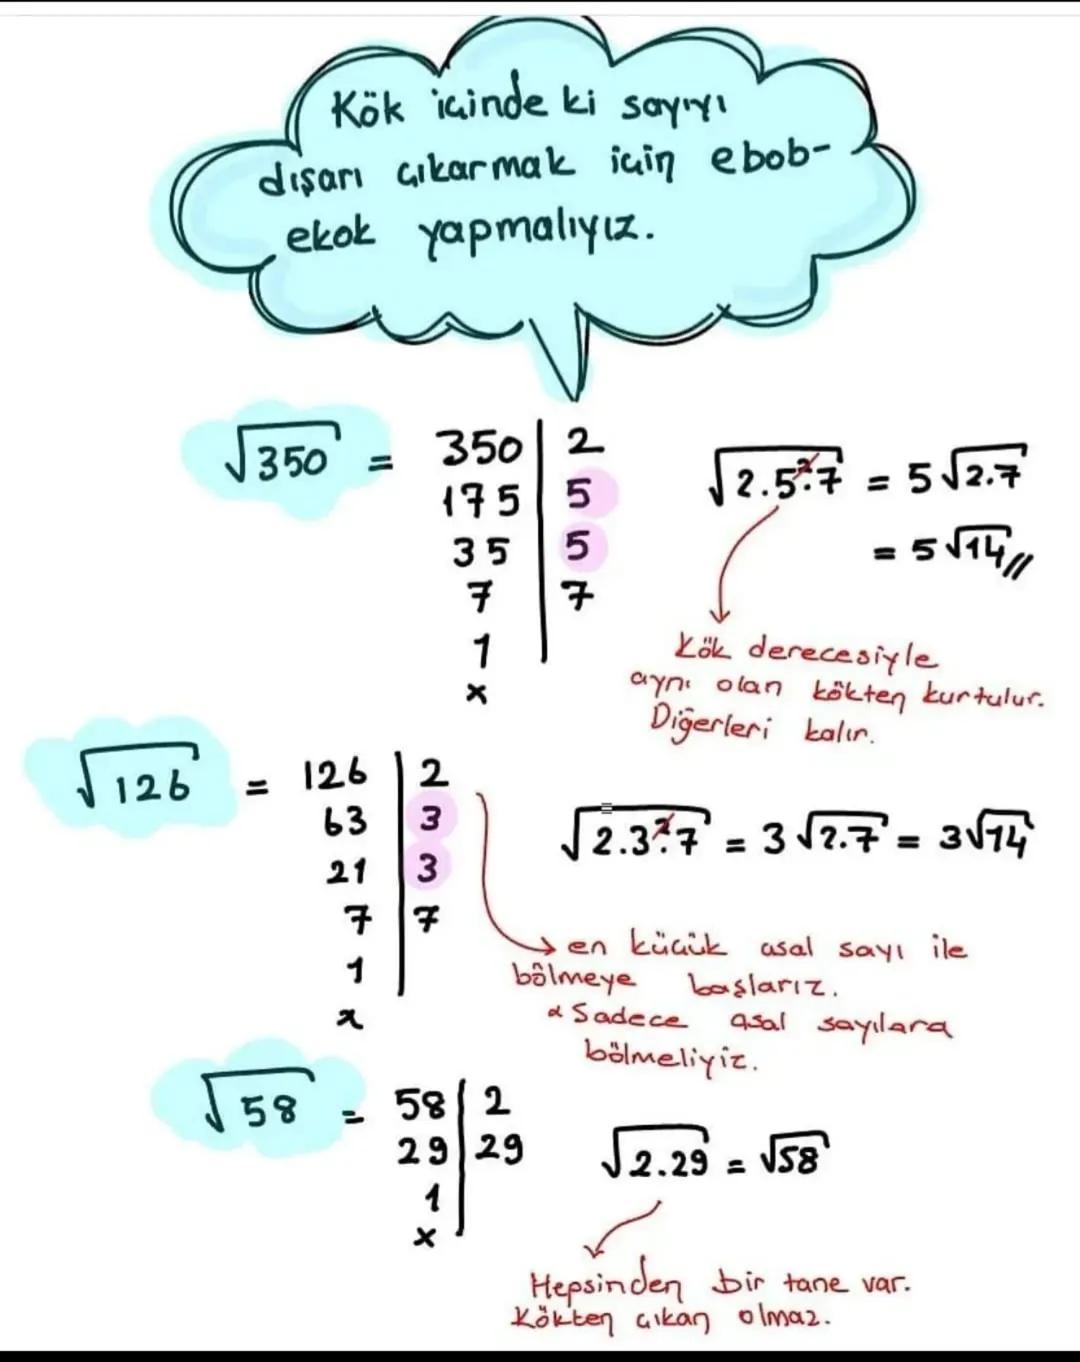 Kök içinde ki sayıyı
dışarı çıkarmak için ebob-
ekok yapmalıyız.
√350 = 350 | 2
175 | 5
35 | 5
7 | 7
1
x
√2.5².7 = 5√2.7
= 5√14//
Kök derecesiyle
aynı olan kökten kurtulur.
Diğerleri kalır.
√126 = 126 | 2
63 | 3
21 | 3
7 | 7
1
x
√2.3².7 = 3√2.7 = 3√14
en küçük asal sayı ile
bölmeye başlarız.
* Sadece asal sayılara
bölmeliyiz.
√58 = 58 | 2
29 | 29
1
x
√2.29 = √58
Hepsinden bir tane var.
Kökten çıkan olmaz.